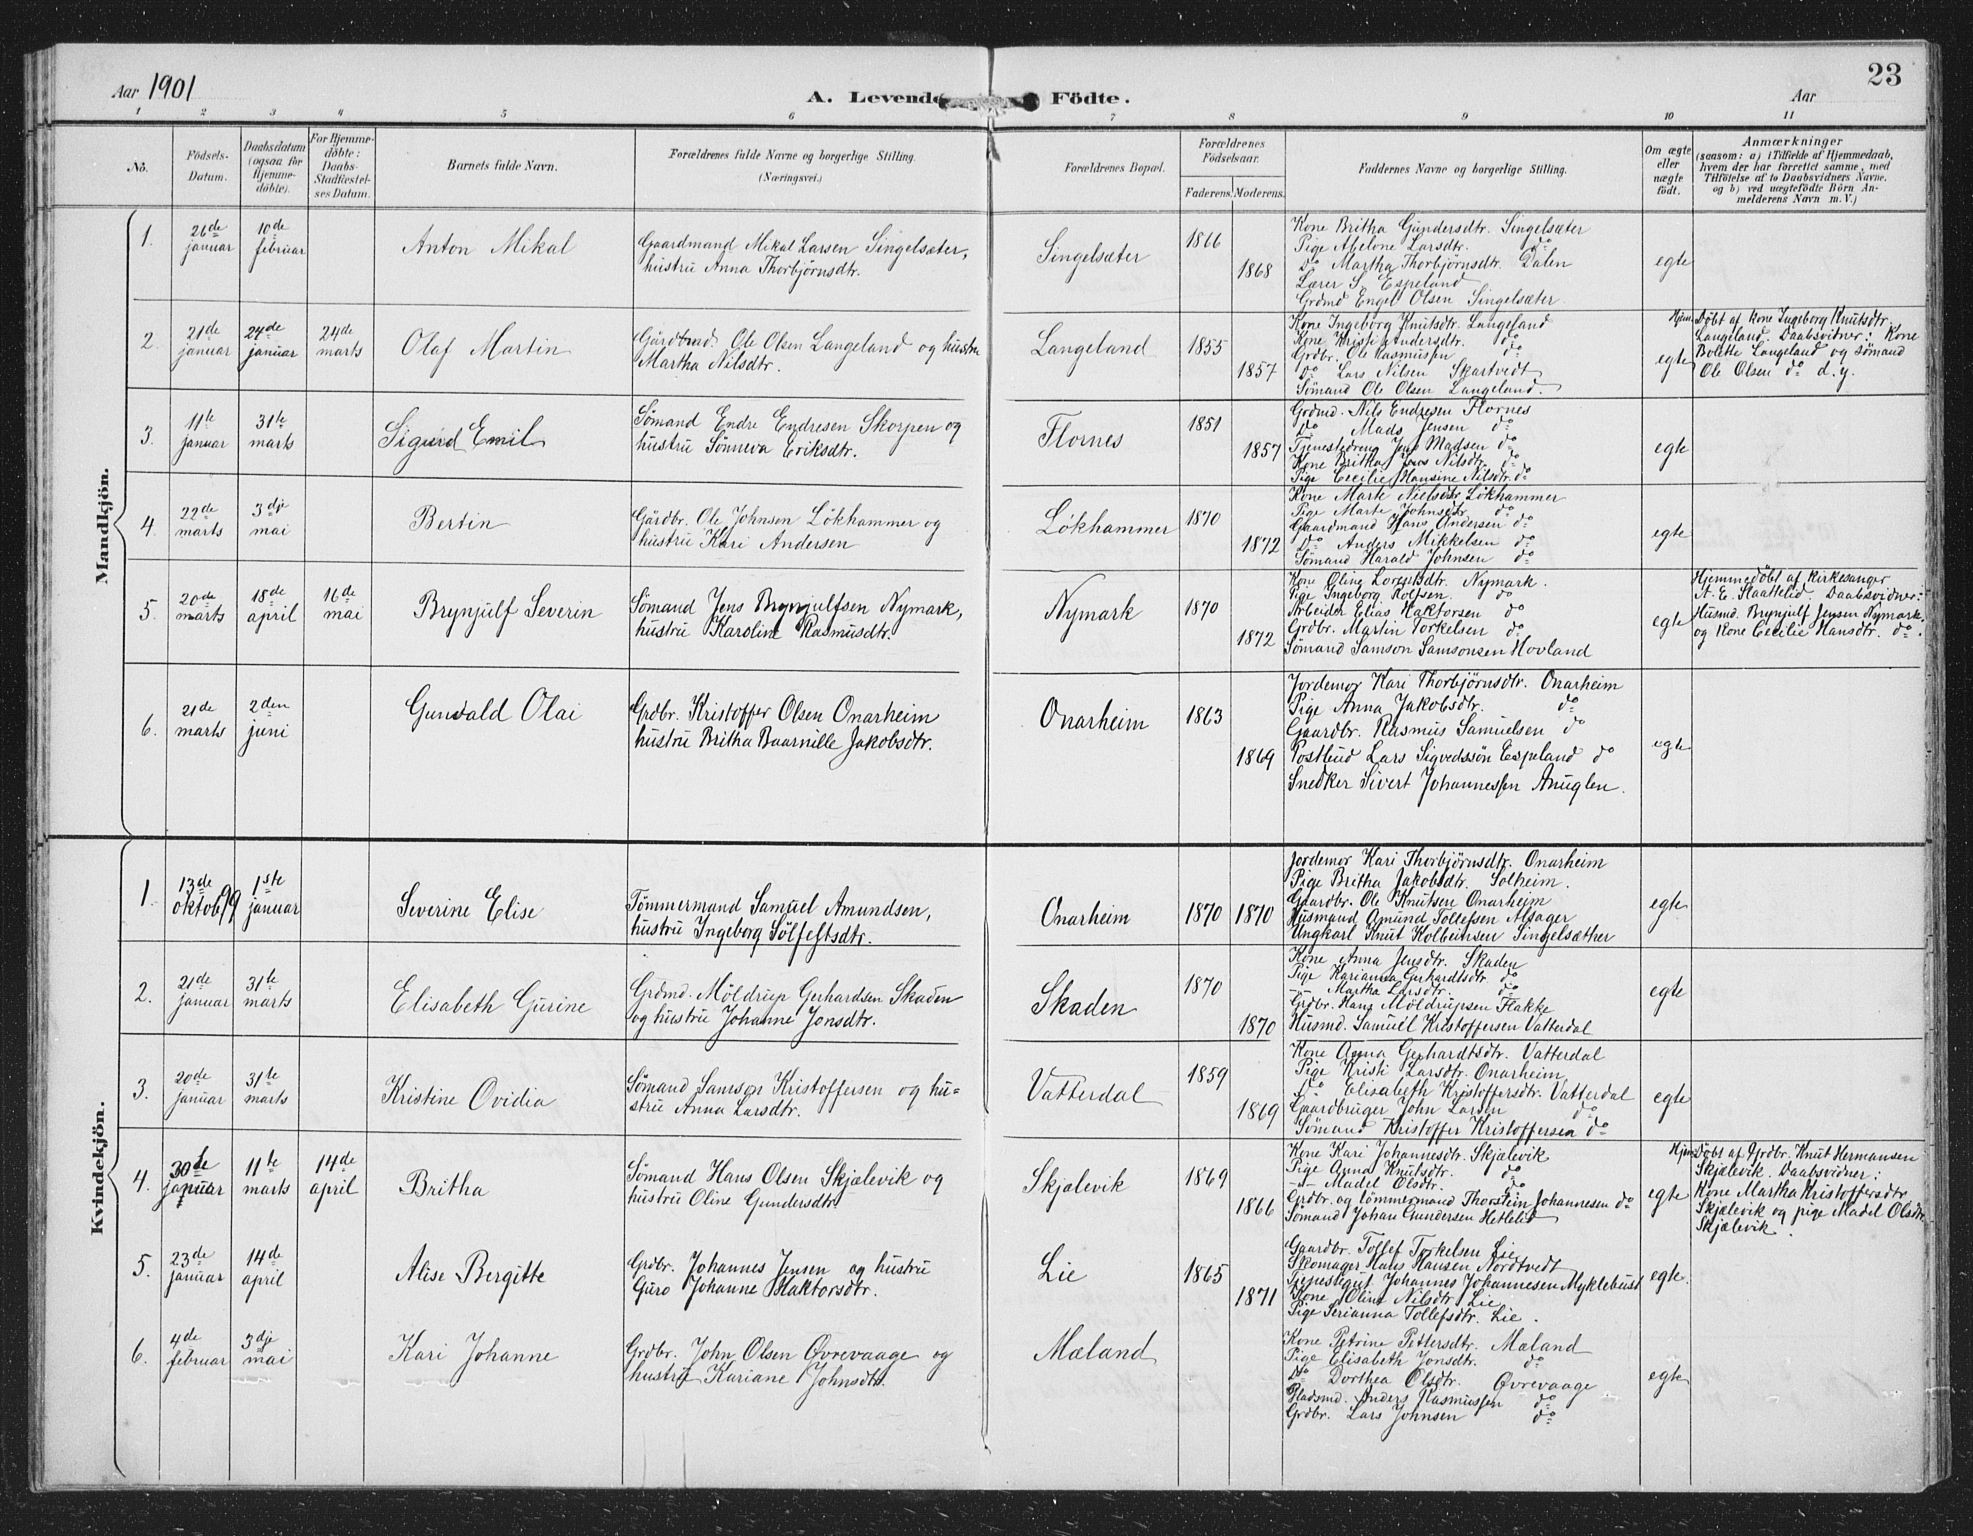 Aar 1901
A. Levende Födte.
Aar
23
1 2 3 4 5 6 7 8 9 10 11
No.
Födsels-
Datum.
Daabsdatum
(ogsaa for
Hjemme-
döbte).
For Hjemme-
döbte:
Daabs-
Stadfæstel-
ses Datum.
Barnets fulde Navn.
Forældrenes fulde Navne og borgerlige Stilling.
(Næringsvei.)
Forældrenes Bopæl.
Forældrenes
Födselsaar.
Faderens. Moderens.
Faddernes Navne og borgerlige Stilling.
Om ægte
eller
uægte
födt.
Anmærkninger
(saasom: a) i Tilfælde af Hjemmedaab,
hvem der har forrettet samme, med
Tilföielse af to Daabsvidners Navne,
og b) ved uægtefödte Börn An-
melderens Navn m. V.)
Mandkjön.
1.
26de
januar
10de
februar
Anton Mikal
Gaardmand Mikal Larsen Singelsæter,
hustru Anna Thorbjörnsdtr.
Singelsæter
1866
1868
Kone Britha Gundersdtr. Singelsæter
Pige Abelone Larsdtr. do
Do Martha Thorbjörnsdtr. Dalen
Lærer S. Espeland
Grdmd Engel Olsen Singelsæter.
egte
2.
21de
januar
24de
januar
24de
marts
Olaf Martin
Gårdbrud. Ole Olsen Langeland og hustru
Martha Nilsdtr.
Langeland
1855
1857
Kone Ingeborg Knutsdtr. Langeland
Kone Kristi Andersdtr. do
Grdbr. Ole Rasmussen do
Do Lars Nilsen Skartvedt
Sömand Ole Olsen Langeland.
egte
Hjem.Döbt af Kone Ingeborg Knutsdtr.
Langeland. Daabsvidner: Kone
Bolette Langeland og sömand
Ole Olsen do d.y.
3.
11te
januar
31te
marts
Sigurd Emil
Sömand Endre Endresen Skorpen og
hustru Sönneva Eriksdtr.
Flornes
1851
1857
Grdmd. Nils Endresen Flornes
Do Mads Jensen do
Tjenestedreng Jens Madsen do
Kone Britha Nilsdtr. do
Pige Cecilie Hansine Nilsdtr. do
egte
4.
22de
marts
3dje
mai
Bertin
Gårdbr. Ole Johnsen Lökhammer og
hustru Kari Andersen
Lökhammer
1870
1872
Kone Marte Nielsdtr Lökhammer
Pige Marte Johnsdtr do
Gaardmand Hans Andersen do
Do Anders Mikkelsen do
Sömand Harald Johnsen do
egte
5.
20de
marts
18de
april
16de
mai
Brynjulf Severin
Sömand Jens Brynjulfsen Nymark,
hustru Karoline Rasmusdtr.
Nymark
1870
1872
Kone Oline Lorentsdtr. Nymark.
Pige Ingeborg Rolfsen. do
Arbeider Elias Haktorsen do
Grdbr. Martin Torkelsen do
Sömand Samson Samsonsen Hovland
egte
Hjemmedöbt af Kirkesanger
A. E. Staattelid. Daabsvidner:
Husmd. Brynjulf Jensen Nymark,
og Kone Cecilie Hansdtr. do.
6.
21de
marts
2den
juni
Gunvald Olai
Grdbr. Kristoffer Olsen Onarheim
hustru Britha Baarnille Jakobsdtr.
Onarheim
1863
1869
Jordemor Kari Thorbjörnsdtr. Onarheim
Pige Anna Jakobsdtr. do
Gaardbr. Rasmus Samuelsen do
Postbud Lars Sigvedssön Espeland do
Snedker Sivert Johannessen Anuglen.
egte
Kvindekjön.
1.
13de
oktob 99
1ste
januar
Severine Elise
Tömmermand Samuel Amundsen,
hustru Ingeborg Sölfestsdtr.
Onarheim
1870
1870
Jordemor Kari Thorbjörnsdtr. Onarheim
Pige Britha Jakobsdtr. Solheim.
Gaardbr. Ole Knutsen Onarheim
Husmand Amund Tollefsen Alsager
Ungkarl Knut Kolbeinsen Singelsæther
egte
2.
21de
januar
31te
marts
Elisabeth Gurine
Grdmd. Möldrup Gerhardsen Skaden
og hustru Johanne Jonsdtr.
Skaden
1870
1870
Kone Anna Jensdtr. Skaden
Pige Karianna Gerhardtsdtr do
-"- Martha Larsdtr. do
Grdbr. Hans Möldrupsen Flakke
Husmd. Samuel Kristoffersen Vatterdal
egte
3.
20de
januar
31te
marts
Kristine Ovidia
Sömand Samson Kristoffersen og hu-
stru Anna Larsdtr.
Vatterdal
1859
1869
Kone Anna Gerhardtsdtr. Vatterdal
Pige Kristi Larsdtr. Onarheim
Do Elisabeth Kristoffersdtr. Vatterdal
Gaardbruger John Larsen do
Sömand Kristoffer Kristoffersen do
egte
4.
30te
januar
11te
marts
14de
april
Britha
Sömand Hans Olsen Skjælevik og
hustru Oline Gundersdtr.
Skjælevik
1869
1866
Kone Kari Johannesdtr. Skjælevik
Pige Anna Knutsdtr. do
-"- Madel Olsdtr. do
Grdbr. og tömmermand Thorstein Johannesen do
Sömand Johan Gundersen Hetletid
egte
Hjem.Döbt af Grdbr. Knut Hermansen
Skjælevik. Daabsvidner:
Kone Martha Kristoffersdtr
Skjælevik og pige Madel Olsdtr
Skjælevik.
5.
23de
januar
14de
april
Alise Bergitte
Grdbr. Johannes Jensen og hustru
Guro Johanne Haktorsdtr.
Lie
1865
1871
Gaardbr. Tollef Torkelsen Lie
Skomager Hans Hansen Nordtvedt
Tjenestegut Johannes Johannesen Myklebust
Kone Oline Nilsdtr Lie
Pige Serianna Tollefsdtr. Lie.
egte.
6.
4de
februar
3dje
mai
Kari Johanne
Grdbr. John Olsen Øvrevaage og
hustru Kariane Johnsdtr.
Mæland
Kone Petrine Pettersdtr. Mæland
Pige Elisabeth Jonsdtr. do
Do Dorthea Olsdtr. Øvrevaage
Pladsmd. Anders Rasmussen do
Grdbr. Lars Johnsen do
egte